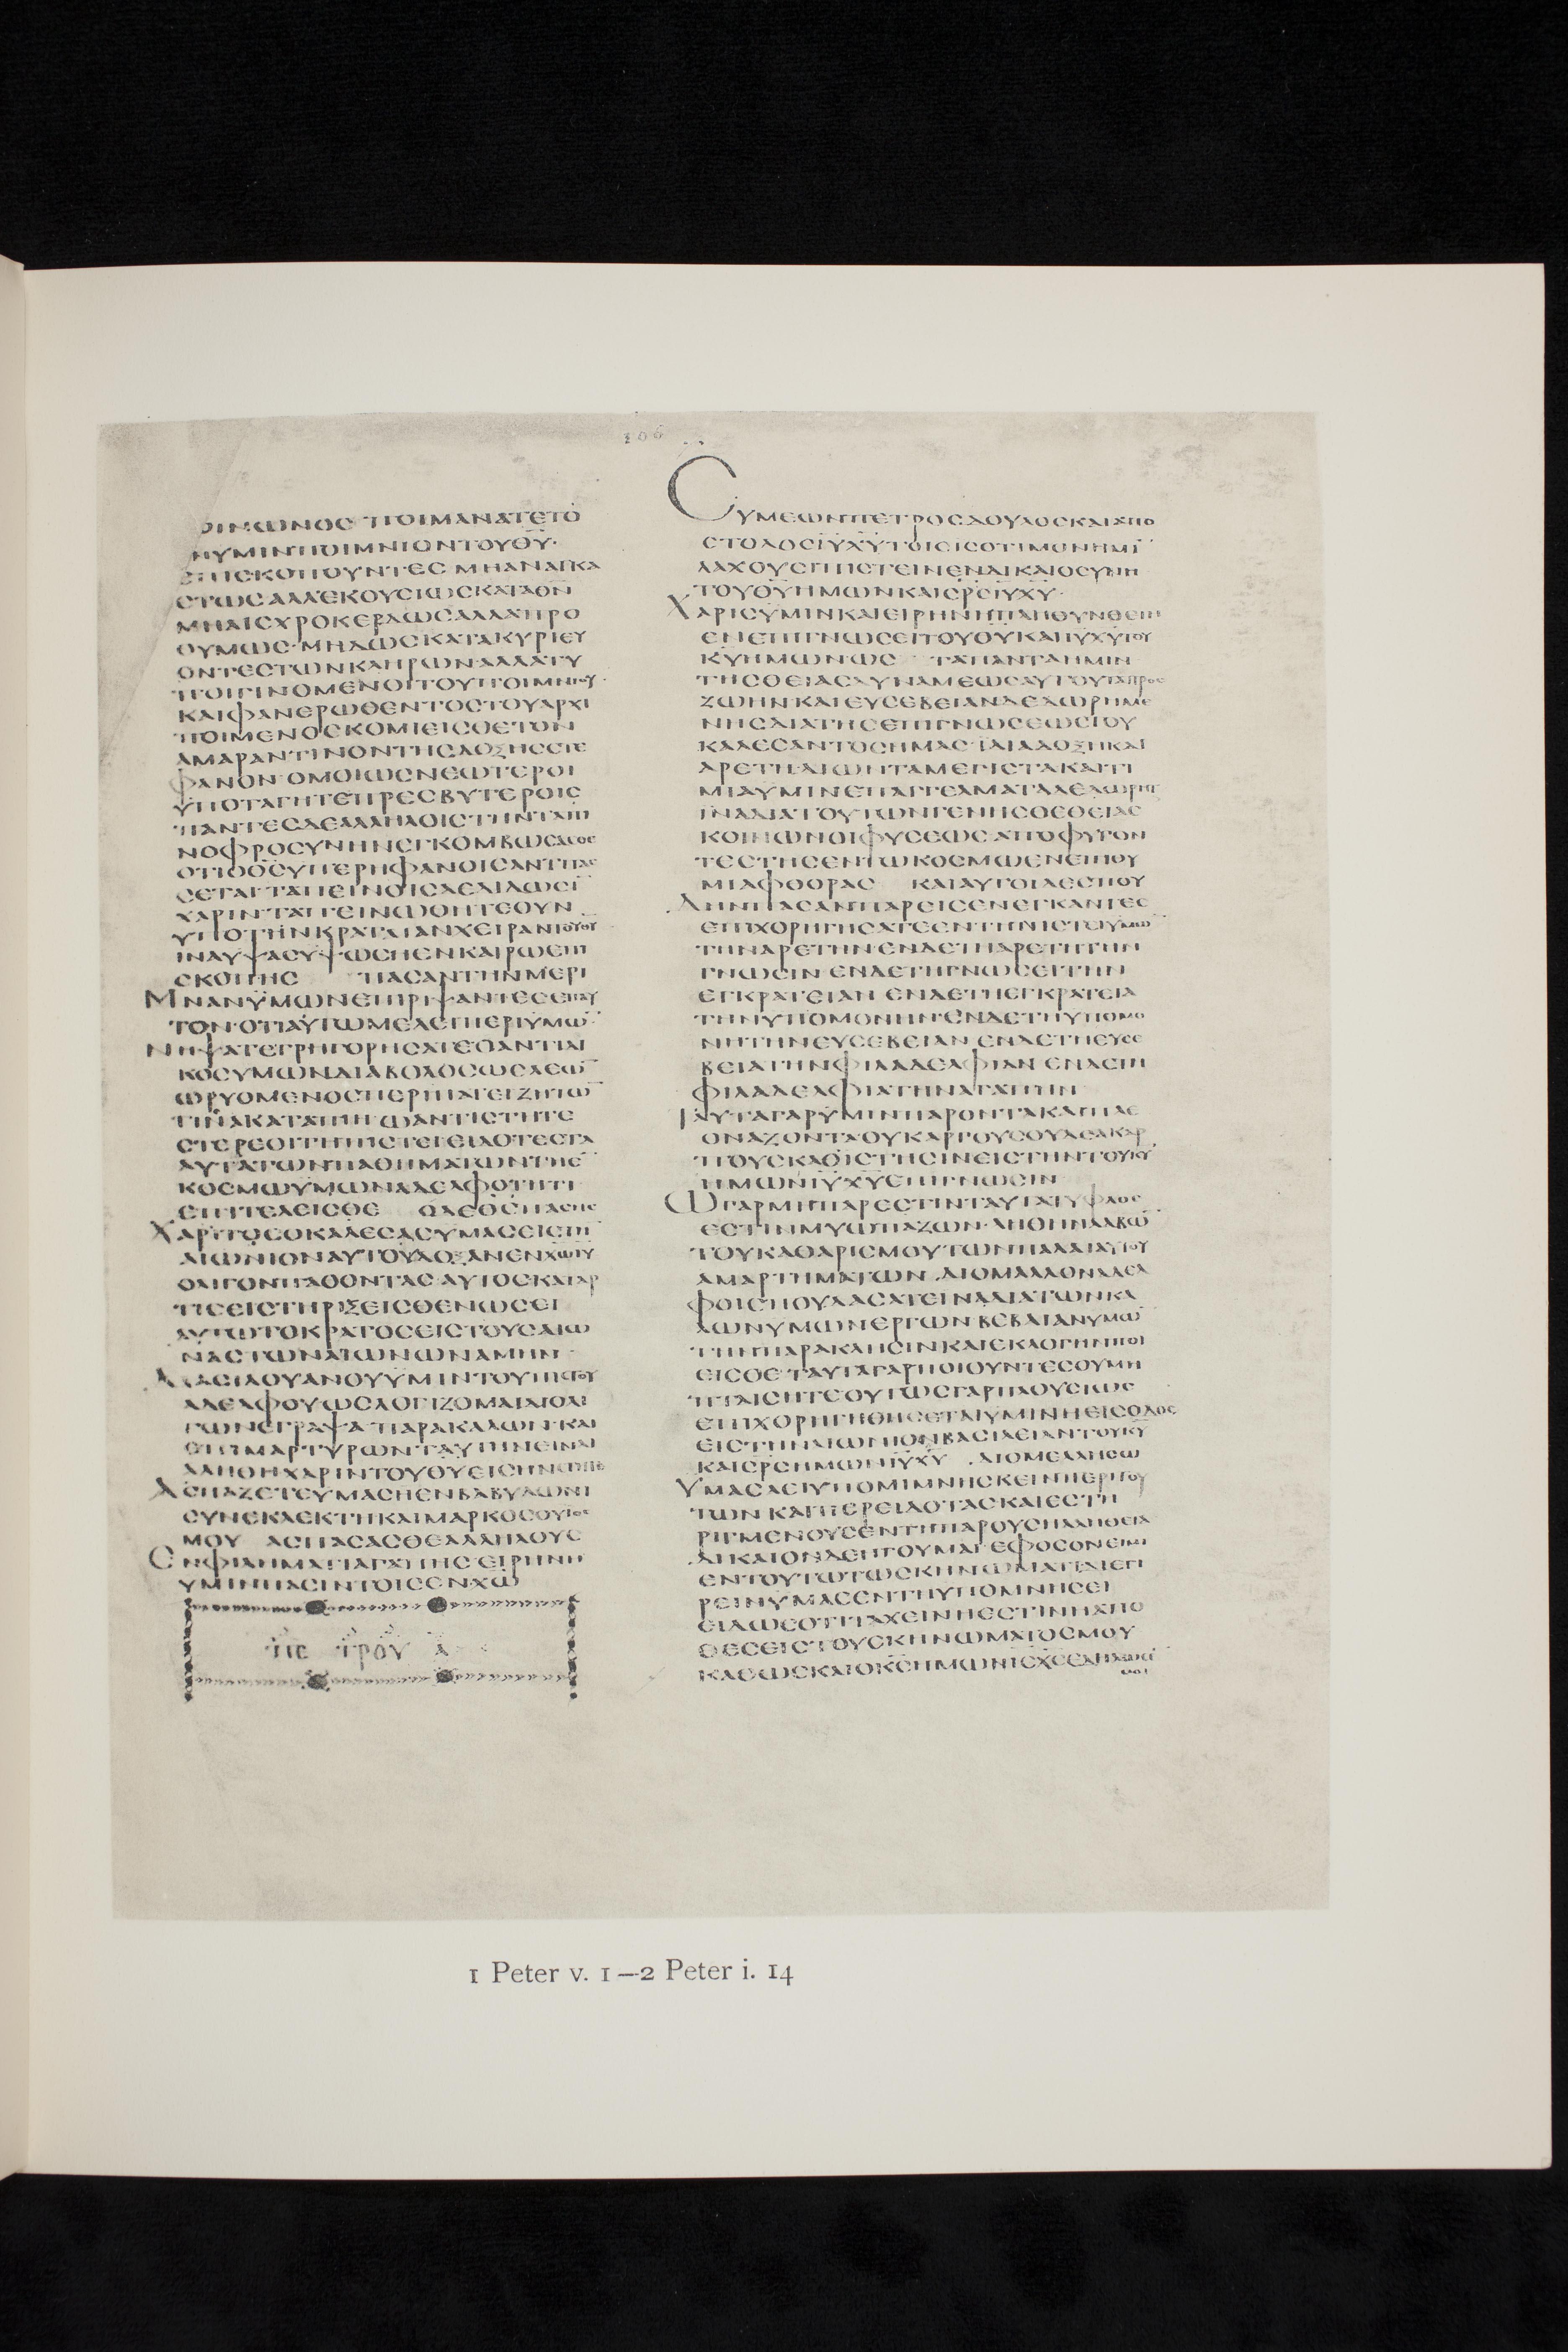 ΟΙΝΩΝΟC ΠΟΙΜΑΝΑΤΕΤΟ
ΝΥΜΙΝΠΟΙΜΝΙΟΝΤΟΥΘ̅Υ̅·
ΕΠΙCΚΟΠΟΥΝΤΕC ΜΗΑΝΑΓΚΑ
CΤΩCΑΛΛΕΚΟΥCΙΩCΚΑΤΑΘ̅Ν̅
ΜΗΑΙCΧΡΟΚΕΡΔΩCΑΛΛΑΠΡΟ
ΘΥΜΩC·ΜΗΔΩCΚΑΤΑΚΥΡΙΕΥ
ΟΝΤΕCΤΩΝΚΛΗΡΩΝ·ΑΛΛΑΤΥ
ΠΟΙΓΙΝΟΜΕΝΟΙΤΟΥΠΟΙΜΝΙΟΥ·
ΚΑΙΦΑΝΕΡΩΘΕΝΤΟCΤΟΥΑΡΧΙ
ΠΟΙΜΕΝΟCΚΟΜΙΕΙCΘΕΤΟΝ
ΑΜΑΡΑΝΤΙΝΟΝΤΗCΔΟΞΗCCΤΕ
ΦΑΝΟΝ·ΟΜΟΙΩCΝΕΩΤΕΡΟΙ
ΫΠΟΤΑΓΗΤΕΠΡΕCΒΥΤΕΡΟΙC
ΠΑΝΤΕCΔΕΑΛΛΗΛΟΙCΤΗΝΤΑΠΙ
ΝΟΦΡΟCΥΝΗΝΕΓΚΟΜΒΩCΑCΘΕ
ΟΤΙΟΘ̅C̅ΥΠΕΡΗΦΑΝΟΙCΑΝΤΙΤΑC
CΕΤΑΙ·ΤΑΠΕΙΝΟΙCΔΕΔΙΔΩCΙ̅
ΧΑΡΙΝ·ΤΑΠΕΙΝΩΘΗΤΕΟΥΝ
ΥΠΟΤΗΝΚΡΑΤΑΙΑΝΧΕΙΡΑΝΤΟΥΘ̅Υ̅
ΙΝΑΥΨΑCΥΨΩCΗΕΝΚΑΙΡΩΕΠΙ
CΚΟΠΗC ΠΑCΑΝΤΗΝΜΕΡΙ
ΜΝΑΝΫΜΩΝΕΠΙΡΙΨΑΝΤΕCΕΠΑΥ
ΤΟΝ·ΟΤΙΑΥΤΩΜΕΛΕΙΠΕΡΙΫΜΩ̅
ΝΗΨΑΤΕΓΡΗΓΟΡΗCΑΤΕΟΑΝΤΙΔΙ
ΚΟCΥΜΩΝΔΙΑΒΟΛΟCΩCΛΕΩ̅
ΩΡΥΟΜΕΝΟCΠΕΡΙΠΑΤΕΙΖΗΤΩ̅
ΤΙΝΑΚΑΤΑΠΙΗ·ΩΑΝΤΙCΤΗΤΕ
CΤΕΡΕΟΙΤΗΠΙCΤΕΙΕΙΔΟΤΕCΤΑ
ΑΥΤΑΤΩΝΠΑΘΗΜΑΤΩΝΤΗC
ΚΟCΜΩΫΜΩΝΑΔΕΛΦΟΤΗΤΙ
ΕΠΙΤΕΛΕΙCΘΕ ΟΔΕΘ̅C̅ΠΑCΗC
ΧΑΡΙΤΟCΟΚΑΛΕCΑCΥΜΑCΕΙCΤΗ̅
ΑΙΩΝΙΟΝΑΥΤΟΥΔΟΞΑΝΕΝΧ̅Ω̅Ι̅Υ̅
ΟΛΙΓΟΝΠΑΘΟΝΤΑC·ΑΥΤΟCΚΑΤΑΡ
ΤΙCΕΙCΤΗΡΙΞΕΙCΘΕΝΩCΕΙ
ΑΥΤΩΤΟΚΡΑΤΟCΕΙCΤΟΥCΑΙΩ
ΝΑCΤΩΝΑΙΩΝΩΝΑΜΗΝ·
ΔΙΑCΙΛΟΥΑΝΟΥΫΜΙΝΤΟΥΠΙCΤΟΥ
ΑΔΕΛΦΟΥΩCΛΟΓΙΖΟΜΑΙΔΙΟΛΙ
ΓΩΝΕΓΡΑΨΑ·ΠΑΡΑΚΑΛΩΝΚΑΙ
ΕΠΙΜΑΡΤΥΡΩΝΤΑΥΤΗΝΕΙΝΑΙ
ΑΛΗΘΗΧΑΡΙΝΤΟΥΘ̅Υ̅ΕΙCΗΝCΤΗΤΕ
ΑCΠΑΖΕΤΕΥΜΑCΗΕΝΒΑΒΥΛΩΝΙ
CΥΝΕΚΛΕΚΤΗΚΑΙΜΑΡΚΟCΟΥΙΟC
ΜΟΥ ΑCΠΑCΑCΘΕΑΛΛΗΛΟΥC
ΕΝΦΙΛΗΜΑΤΙΑΓΑΠΗC·ΕΙΡΗΝΗ
ΥΜΙΝΠΑCΙΝΤΟΙCΕΝΧ̅Ω̅
ΠΕ ΤΡΟΥ Α
106
CΥΜΕΩΝΠΕΤΡΟCΔΟΥΛΟCΚΑΙΑΠΟ
CΤΟΛΟCΙ̅Υ̅Χ̅Υ̅ΤΟΙCΙCΟΤΙΜΟΝΗΜΙ̅
ΛΑΧΟΥCΠΙCΤΕΙΝΕΝΔΙΚΑΙΟCΥΝΗ
ΤΟΥΘ̅Υ̅ΗΜΩΝΚΑΙC̅Ρ̅C̅Ι̅Υ̅Χ̅Υ̅·
ΧΑΡΙCΥΜΙΝΚΑΙΕΙΡΗΝΗΠΛΗΘΥΝΘΕΙΗ
ΕΝΕΠΙΓΝΩCΕΙΤΟΥΘ̅Υ̅ΚΑΙΙ̅Υ̅Χ̅Υ̅ΤΟΥ
Κ̅Υ̅ΗΜΩΝΩC ΤΑΠΑΝΤΑΗΜΙΝ
ΤΗCΘΕΙΑCΔΥΝΑΜΕΩCΑΥΤΟΥΤΑΠΡΟC
ΖΩΗΝΚΑΙΕΥCΕΒΕΙΑΝΔΕΔΩΡΗΜΕ
ΝΗCΔΙΑΤΗCΕΠΙΓΝΩCΕΩCΤΟΥ
ΚΑΛΕCΑΝΤΟCΗΜΑC·ΪΔΙΑΔΟΞΗΚΑΙ
ΑΡΕΤΗ·ΔΙΩΝΤΑΜΕΓΙCΤΑΚΑΙΤΙ
ΜΙΑΥΜΙΝΕΠΑΓΓΕΛΜΑΤΑΔΕΔΩΡΗΤ
ΪΝΑΔΙΑΤΟΥΤΩΝΓΕΝΗCΘΕΘΕΙΑC
ΚΟΙΝΩΝΟΙΦΥCΕΩC·ΑΠΟΦΥΓΟΝ
ΤΕCΤΗCΕΝΤΩΚΟCΜΩΕΝΕΠΙΘΥ
ΜΙΑΦΘΟΡΑC ΚΑΙΑΥΤΟΙΔΕCΠΟΥ
ΔΗΝΠΑCΑΝΠΑΡΕΙCΕΝΕΓΚΑΝΤΕC
ΕΠΙΧΟΡΗΓΗCΑΤΕΕΝΤΗΠΙCΤΙΫΜΩ̅
ΤΗΝΑΡΕΤΗΝ·ΕΝΔΕΤΗΑΡΕΤΗΤΗΝ
ΓΝΩCΙΝ·ΕΝΔΕΤΗΓΝΩCΕΙΤΗΝ
ΕΓΚΡΑΤΕΙΑΝ·ΕΝΔΕΤΗΕΓΚΡΑΤΕΙΑ
ΤΗΝΥΠΟΜΟΝΗΝ·ΕΝΔΕΤΗΥΠΟΜΟ
ΝΗΤΗΝΕΥCΕΒΕΙΑΝ·ΕΝΔΕΤΗΕΥCΕ
ΒΕΙΑΤΗΝΦΙΛΑΔΕΛΦΙΑΝ·ΕΝΔΕΤΗ
ΦΙΛΑΔΕΛΦΙΑΤΗΝΑΓΑΠΗΝ
ΤΑΥΤΑΓΑΡΫΜΙΝΠΑΡΟΝΤΑΚΑΙΠΛΕ
ΟΝΑΖΟΝΤΑΟΥΚΑΡΓΟΥCΟΥΔΕΑΚΑΡ
ΠΟΥCΚΑΘΙCΤΗCΙΝΕΙCΤΗΝΤΟΥΚ̅Υ̅
ΗΜΩΝΙ̅Υ̅Χ̅Υ̅ΕΠΙΓΝΩCΙΝ
ΩΓΑΡΜΗΠΑΡΕCΤΙΝΤΑΥΤΑΤΥΦΛΟC
ΕCΤΙΝΜΥΩΠΑΖΩΝ·ΛΗΘΗΝΛΑΒΩ̅
ΤΟΥΚΑΘΑΡΙCΜΟΥΤΩΝΠΑΛΑΙΑΥΤΟΥ
ΑΜΑΡΤΗΜΑΤΩΝ·ΔΙΟΜΑΛΛΟΝΑΔΕΛ
ΦΟΙCΠΟΥΔΑCΑΤΕΙΝΑΔΙΑΤΩΝΚΑ
ΛΩΝΥΜΩΝΕΡΓΩΝΒΕΒΑΙΑΝΥΜΩ̅
ΤΗΝΠΑΡΑΚΛΗCΙΝΚΑΙΕΚΛΟΓΗΝΠΟΙ
ΕΙCΘΕ·ΤΑΥΤΑΓΑΡΠΟΙΟΥΝΤΕCΟΥΜΗ
ΠΤΑΙCΗΤΕΟΥΤΩCΓΑΡΠΛΟΥCΙΩC
ΕΠΙΧΟΡΗΓΗΘΗCΕΤΑΙΥΜΙΝΗΕΙCΟΔΟC
ΕΙCΤΗΝΑΙΩΝΙΟΝΒΑCΙΛΕΙΑΝΤΟΥΚ̅Υ̅
ΚΑΙC̅Ρ̅C̅ΗΜΩΝΙ̅Υ̅Χ̅Υ̅ ·ΔΙΟΜΕΛΛΗCΩ
ΥΜΑCΑΕΙΥΠΟΜΙΜΝΗCΚΕΙΝΠΕΡΙΤΟΥ
ΤΩΝΚΑΙΠΕΡΕΙΔΟΤΑCΚΑΙΕCΤΗ
ΡΙΓΜΕΝΟΥCΕΝΤΗΠΑΡΟΥCΗΑΛΗΘΕΙΑ
ΔΙΚΑΙΟΝΔΕΗΓΟΥΜΑΙ·ΕΦΟCΟΝΕΙΜΙ
ΕΝΤΟΥΤΩΤΩCΚΗΝΩΜΑΤΙΔΙΕΓΙ
ΡΕΙΝΥΜΑCΕΝΤΗΥΠΟΜΝΗCΕΙ
ΕΙΔΩCΟΤΙΤΑΧΕΙΝΗΕCΤΙΝΗΑΠΟ
ΘΕCΕΙCΤΟΥCΚΗΝΩΜΑΤΟCΜΟΥ
ΚΑΘΩCΚΑΙΟΚ̅C̅ΗΜΩΝΙ̅C̅Χ̅C̅ΕΔΗΛΩCΕ̅
ΜΟΙ
1 Peter v. 1—2 Peter i. 14